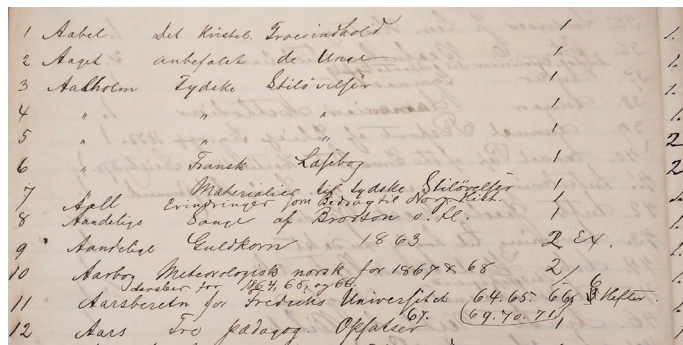 1 Aabel Det Kristel. Troesindhold 1
2 Aaget anbefalet de Unge 1
3 Aalholm Tydske Stiløvelser 1
4 " " " 1
5 " " " 1
6 " Fransk Læsebog 1
Materialier til tydske Stiløvelser
7 Aall Erindringer som Bedrag til Norg. Hist. 1
8 Aandelige Sange af Brorson o. fl. 1
9 Aandelige Guldkorn 1863 2 Ex.
10 Aarbog Meteorologisk norsk for 1867 & 68 2
danske for 1864, 65, og 66.
11 Aarsberetn for Fredriks Universitet 64. 65. 66, Hefter.
67. 69. 70. 71
12 Aars Tre pædagog. Opsatser 1